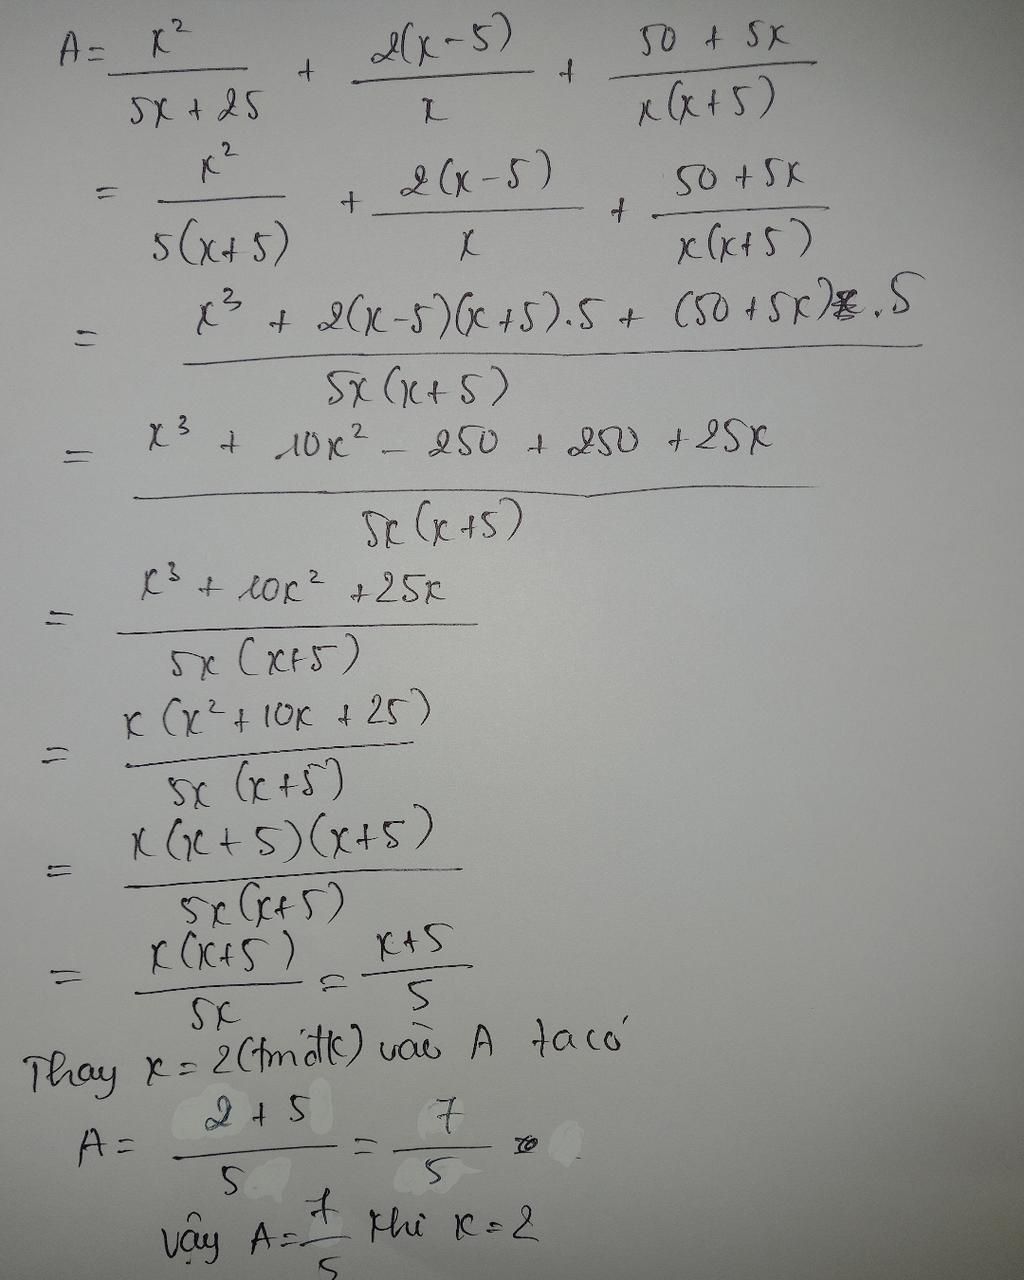 A = x²/(5x + 25) + 2(x - 5)/x + (50 + 5x)/(x(x + 5))
= x²/(5(x + 5)) + 2(x - 5)/x + (50 + 5x)/(x(x + 5))
= (x³ + 2(x - 5)(x + 5).5 + (50 + 5x).5)/(5x(x + 5))
= (x³ + 10x² - 250 + 250 + 25x)/(5x(x + 5))
= (x³ + 10x² + 25x)/(5x(x + 5))
= x(x² + 10x + 25)/(5x(x + 5))
= x(x + 5)(x + 5)/(5x(x + 5))
= x(x + 5)/(5x) = (x + 5)/5
Thay x = 2 (tmđk) vào A ta có
A = (2 + 5)/5 = 7/5
vậy A = 7/5 khi x = 2